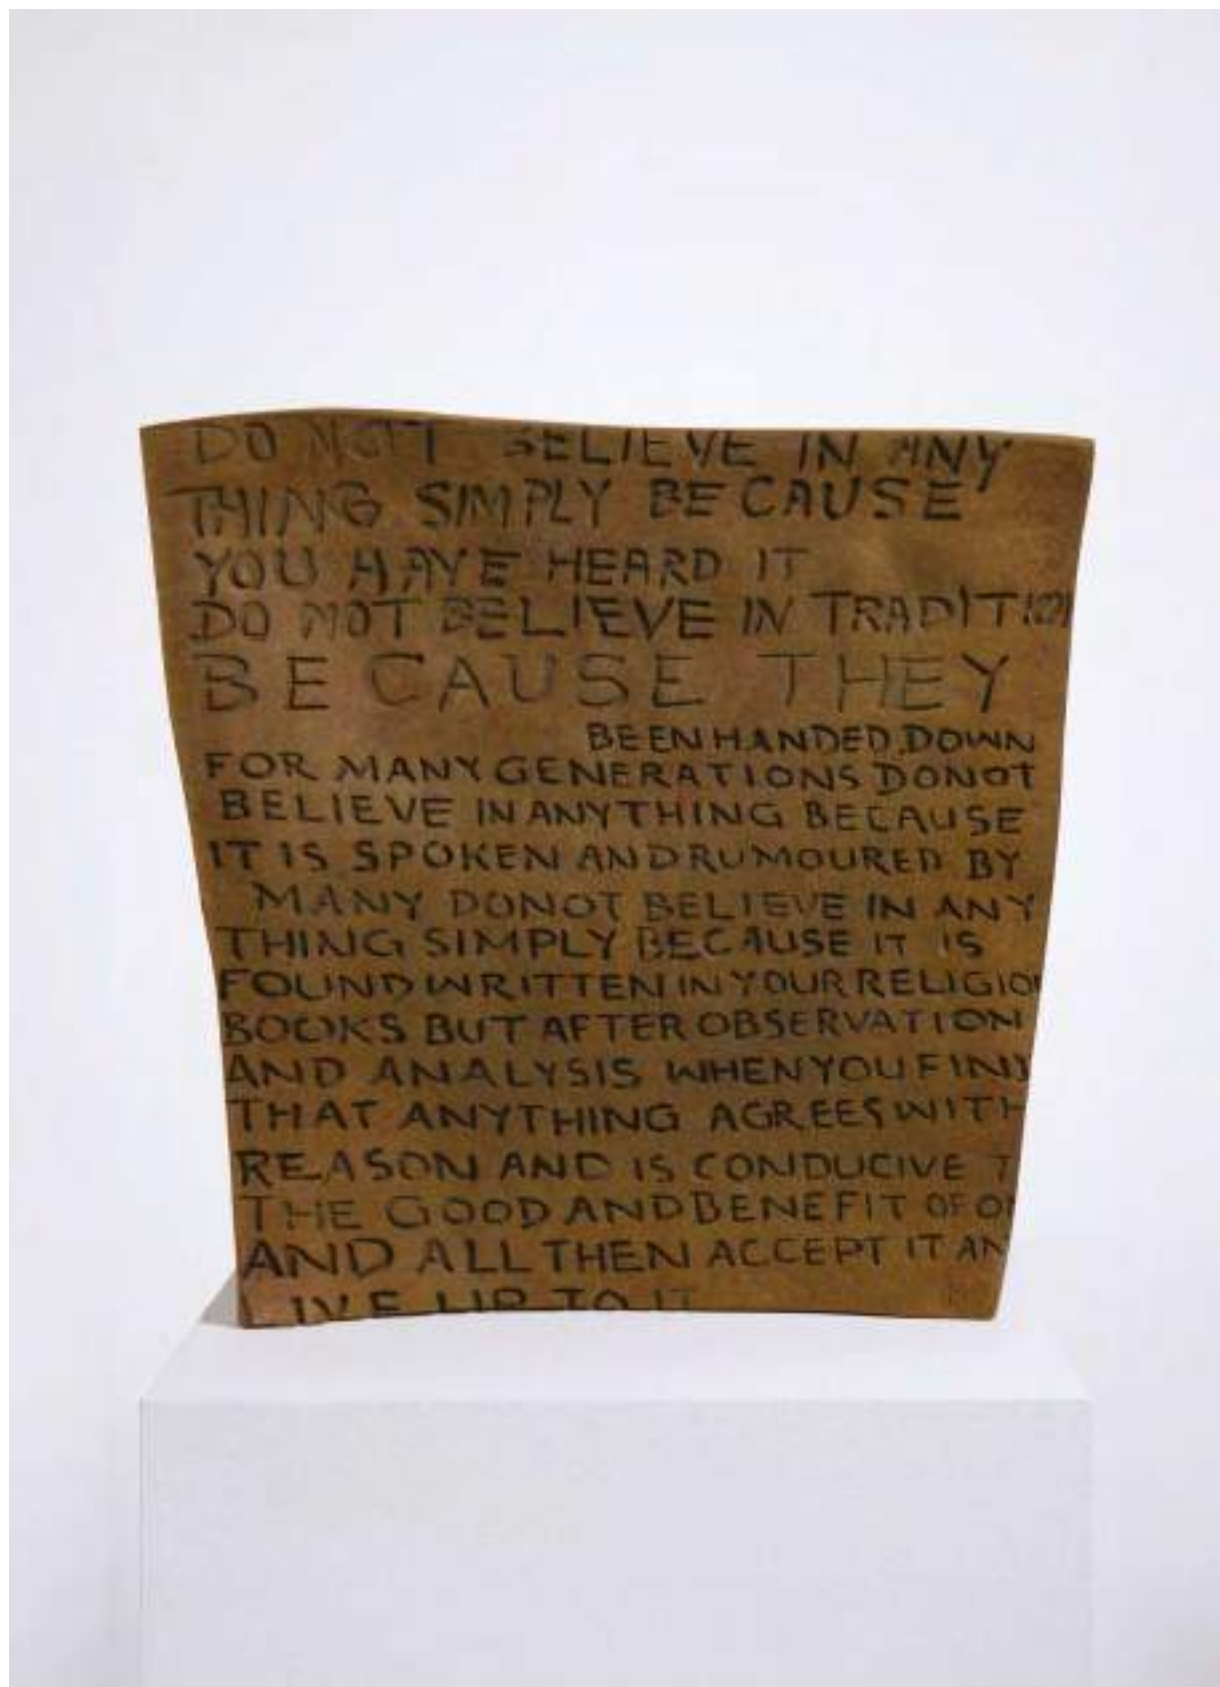 DO NOT BELIEVE IN ANY
THING SIMPLY BECAUSE
YOU HAVE HEARD IT
DO NOT BELIEVE IN TRADITION
BECAUSE THEY
BEEN HANDED DOWN
FOR MANY GENERATIONS DONOT
BELIEVE IN ANYTHING BECAUSE
IT IS SPOKEN AND RUMOURED BY
MANY DONOT BELIEVE IN ANY
THING SIMPLY BECAUSE IT IS
FOUND WRITTEN IN YOUR RELIGION
BOOKS BUT AFTER OBSERVATION
AND ANALYSIS WHEN YOU FIND
THAT ANYTHING AGREES WITH
REASON AND IS CONDUCIVE T
THE GOOD AND BENEFIT OF O
AND ALL THEN ACCEPT IT AN
LIVE UP TO IT